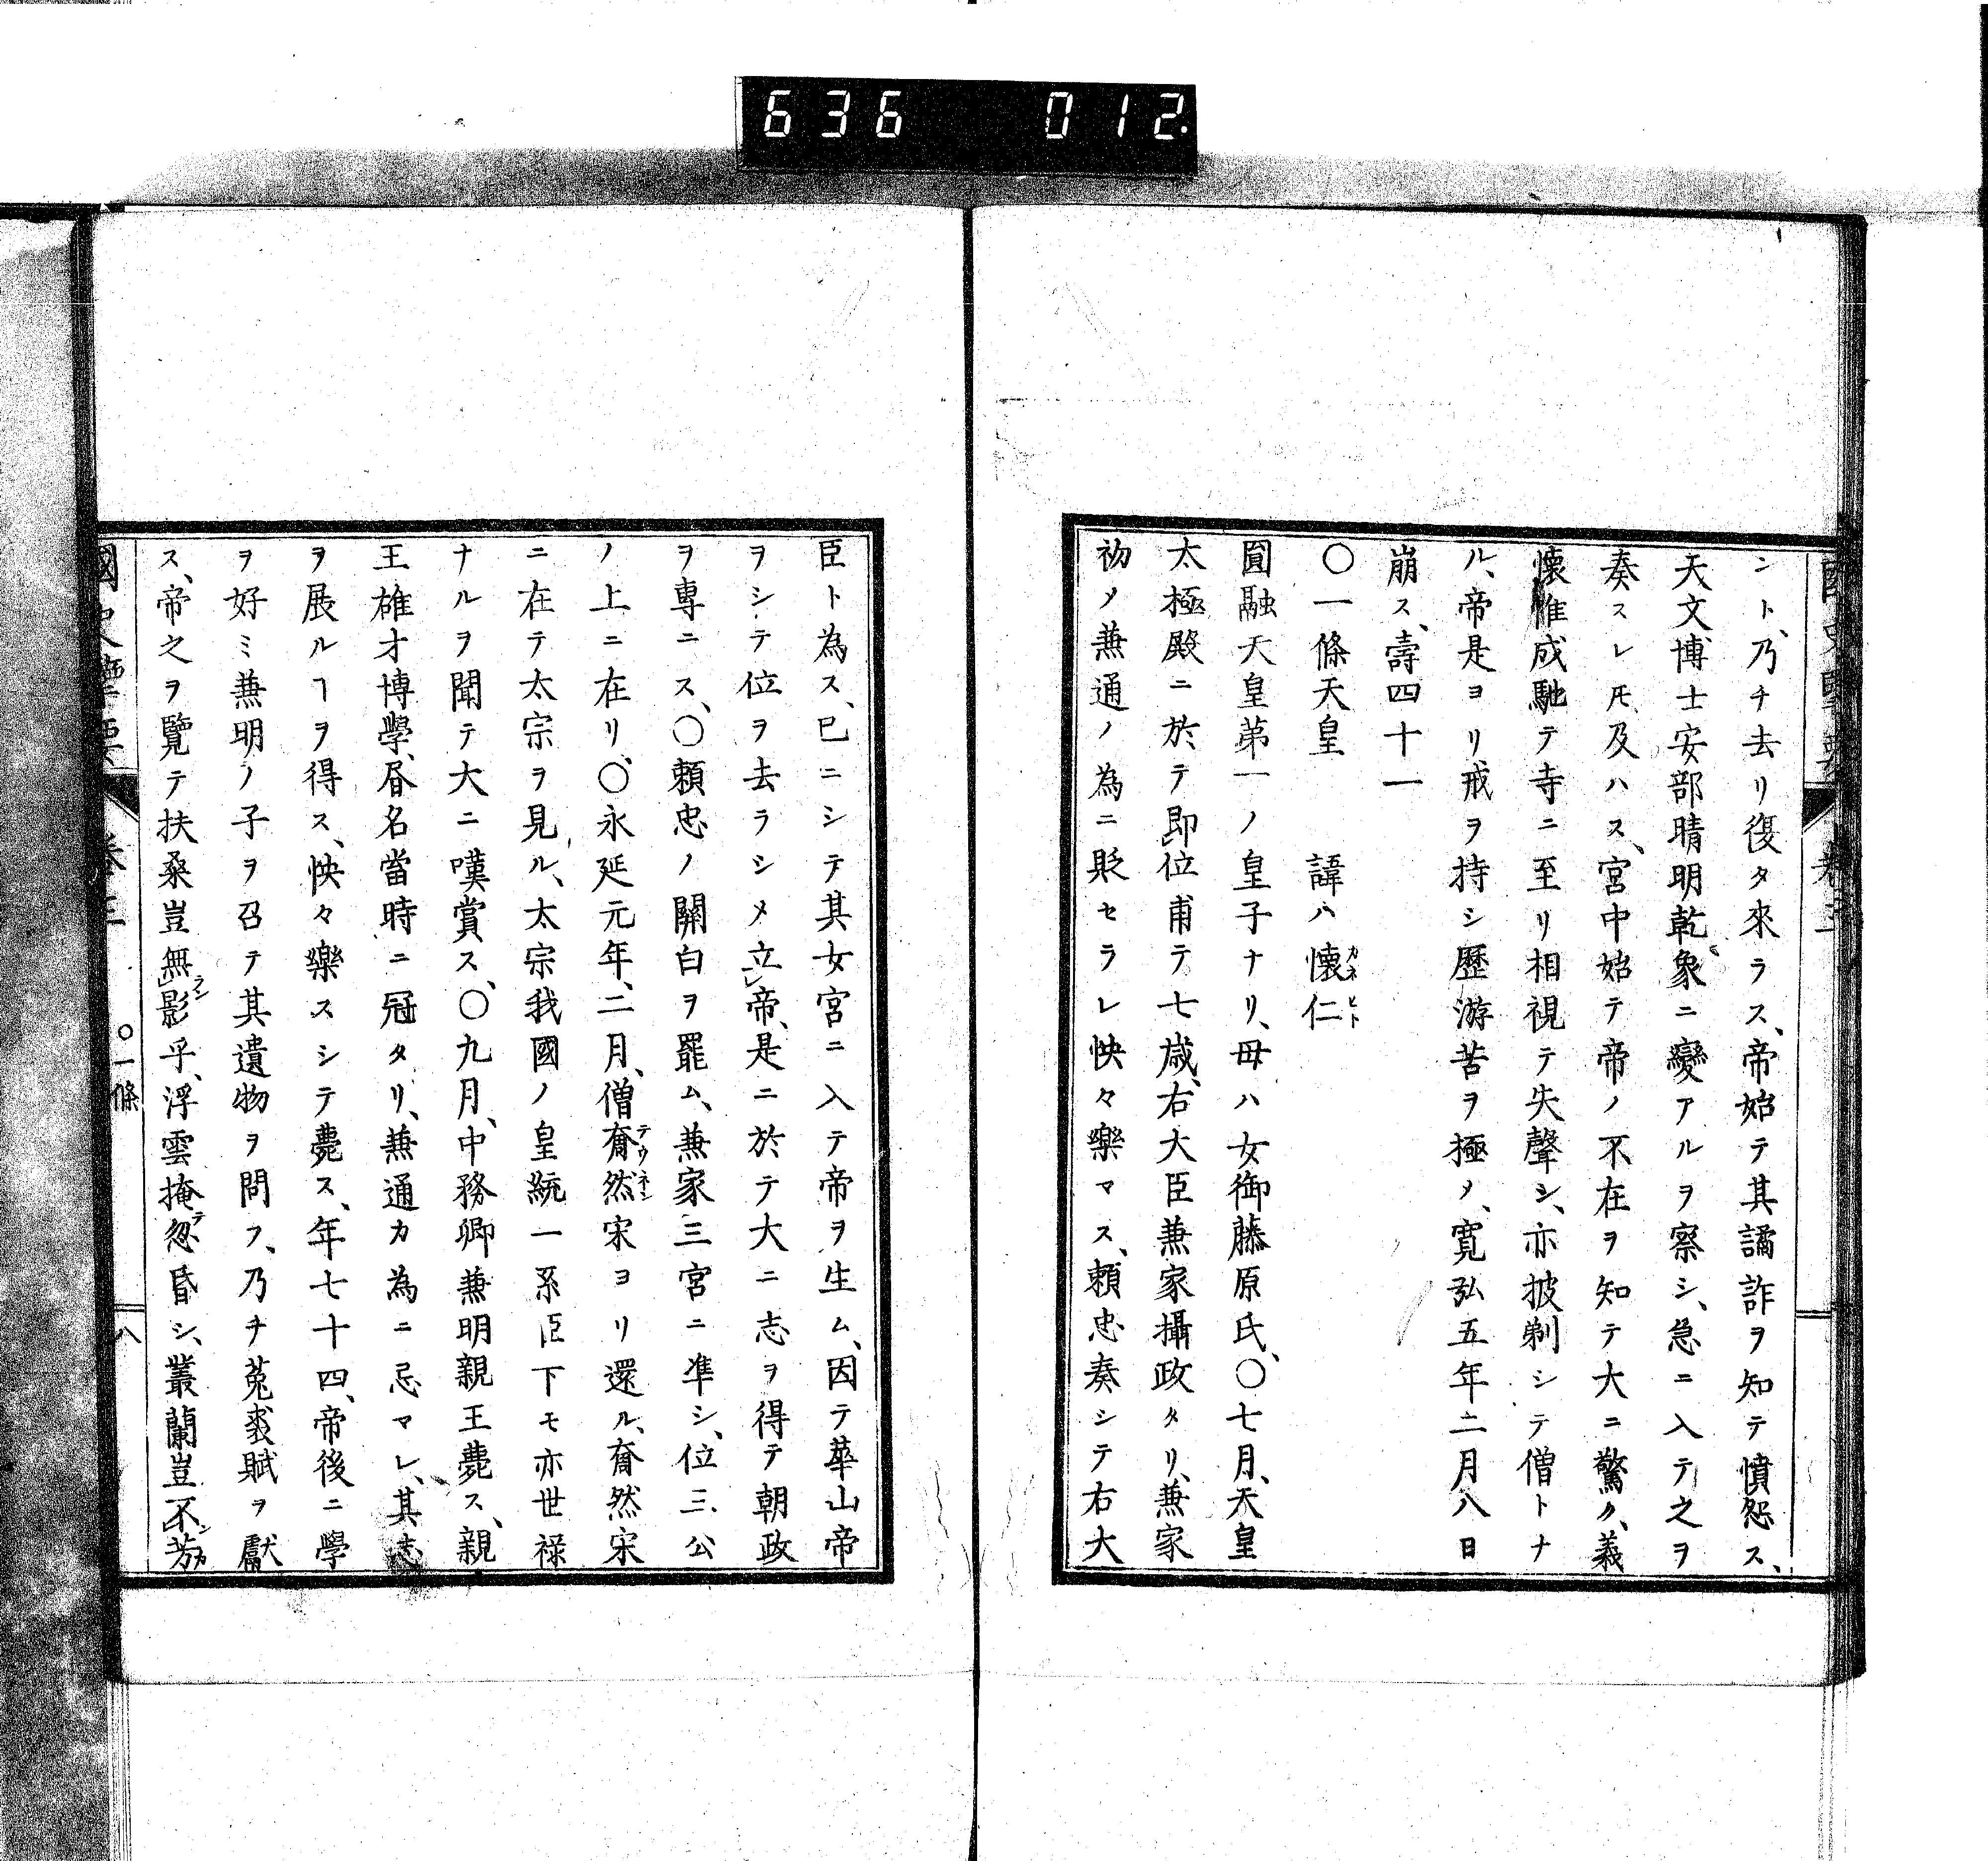 636 012
シト、乃チ去リ復タ來ラス、帝始テ其譎詐ヲ知テ憤怨ス、
天文博士安部晴明乾象ニ變アルヲ察シ、急ニ入テ之ヲ
奏スレ𪜈及ハス、宮中始テ帝ノ不在ヲ知テ大ニ驚ク、義
懐惟成馳テ寺ニ至リ相視テ失聲シ、亦披剃シテ僧トナ
ル、帝是ヨリ戒ヲ持シ歷游苦ヲ極メ、寛弘五年二月八日
崩ス、壽四十一
〇一條天皇 諱ハ懷仁カネヒト
圓融天皇第一ノ皇子ナリ、母ハ女御藤原氏、〇七月、天皇
太極殿ニ於テ即位甫テ七歳、右大臣兼家攝政タリ、兼家
初メ兼通ノ為ニ貶セラレ怏々樂マス、頼忠奏シテ右大
臣ト為ス、已ニシテ其女宮ニ入テ帝ヲ生ム、因テ華山帝
ヲシテ位ヲ去ラシメ立帝、是ニ於テ大ニ志ヲ得テ朝政
ヲ專ニス、〇頼忠ノ關白ヲ罷ム、兼家三宮ニ凖シ、位三公
ノ上ニ在リ、〇永延元年、二月、僧奝然テウネン宋ヨリ還ル、奝然宋
ニ在テ太宗ヲ見ル、太宗我國ノ皇統一系臣下モ亦世禄
ナルヲ聞テ大ニ嘆賞ス、〇九月、中務卿兼明親王薨ス、親
王雄才博學、名當時ニ冠タリ、兼通カ為ニ忌マレ、其志
ヲ展ルヿヲ得ス、怏々樂スシテ薨ス、年七十四、帝後ニ學
ヲ好ミ兼明ノ子ヲ召テ其遺物ヲ問フ、乃チ菟裘賦ヲ獻
ス、帝之ヲ覽テ扶桑豈無ラン影乎、浮雲掩テ忽昏シ、叢蘭豈不芳
卷三 〇一條 八